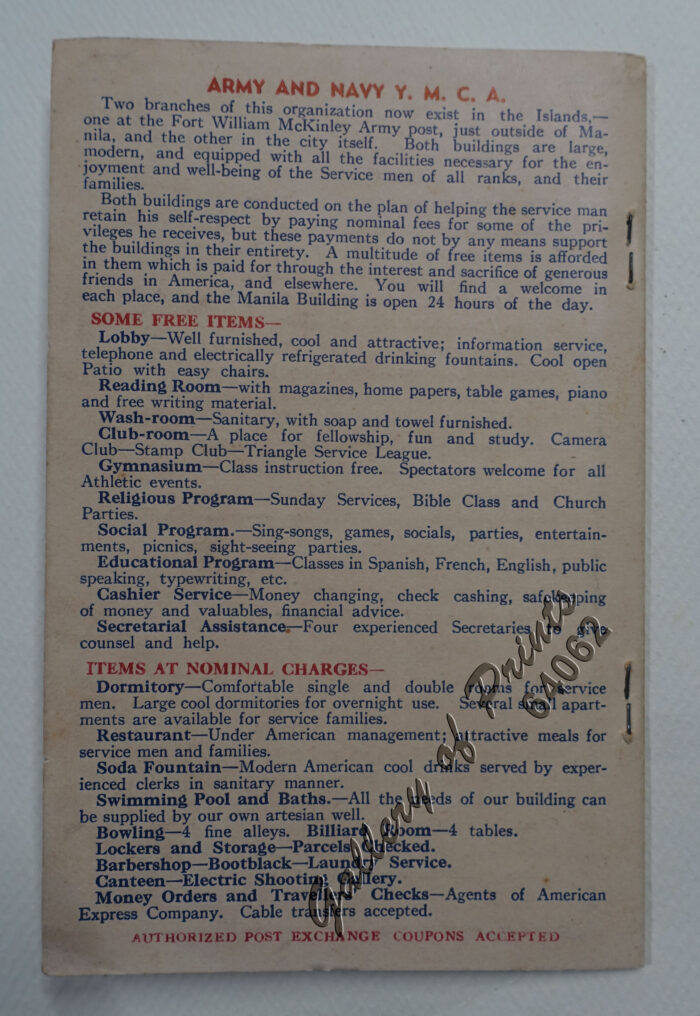 ARMY AND NAVY Y. M. C. A.
Two branches of this organization now exist in the Islands,—
one at the Fort William McKinley Army post, just outside of Ma-
nila, and the other in the city itself. Both buildings are large,
modern, and equipped with all the facilities necessary for the en-
joyment and well-being of the Service men of all ranks, and their
families.
Both buildings are conducted on the plan of helping the service man
retain his self-respect by paying nominal fees for some of the pri-
vileges he receives, but these payments do not by any means support
the buildings in their entirety. A multitude of free items is afforded
in them which is paid for through the interest and sacrifice of generous
friends in America, and elsewhere. You will find a welcome in
each place, and the Manila Building is open 24 hours of the day.
SOME FREE ITEMS—
Lobby—Well furnished, cool and attractive; information service,
telephone and electrically refrigerated drinking fountains. Cool open
Patio with easy chairs.
Reading Room—with magazines, home papers, table games, piano
and free writing material.
Wash-room—Sanitary, with soap and towel furnished.
Club-room—A place for fellowship, fun and study. Camera
Club—Stamp Club—Triangle Service League.
Gymnasium—Class instruction free. Spectators welcome for all
Athletic events.
Religious Program—Sunday Services, Bible Class and Church
Parties.
Social Program.—Sing-songs, games, socials, parties, entertain-
ments, picnics, sight-seeing parties.
Educational Program—Classes in Spanish, French, English, public
speaking, typewriting, etc.
Cashier Service—Money changing, check cashing, safekeeping
of money and valuables, financial advice.
Secretarial Assistance—Four experienced Secretaries to give
counsel and help.
ITEMS AT NOMINAL CHARGES—
Dormitory—Comfortable single and double rooms for service
men. Large cool dormitories for overnight use. Several small apart-
ments are available for service families.
Restaurant—Under American management; attractive meals for
service men and families.
Soda Fountain—Modern American cool drinks served by exper-
ienced clerks in sanitary manner.
Swimming Pool and Baths.—All the needs of our building can
be supplied by our own artesian well.
Bowling—4 fine alleys. Billiard Room—4 tables.
Lockers and Storage—Parcels Checked.
Barbershop—Bootblack—Laundry Service.
Canteen—Electric Shooting Gallery.
Money Orders and Travellers Checks—Agents of American
Express Company. Cable transfers accepted.
AUTHORIZED POST EXCHANGE COUPONS ACCEPTED
Gallery of Prints
6A062